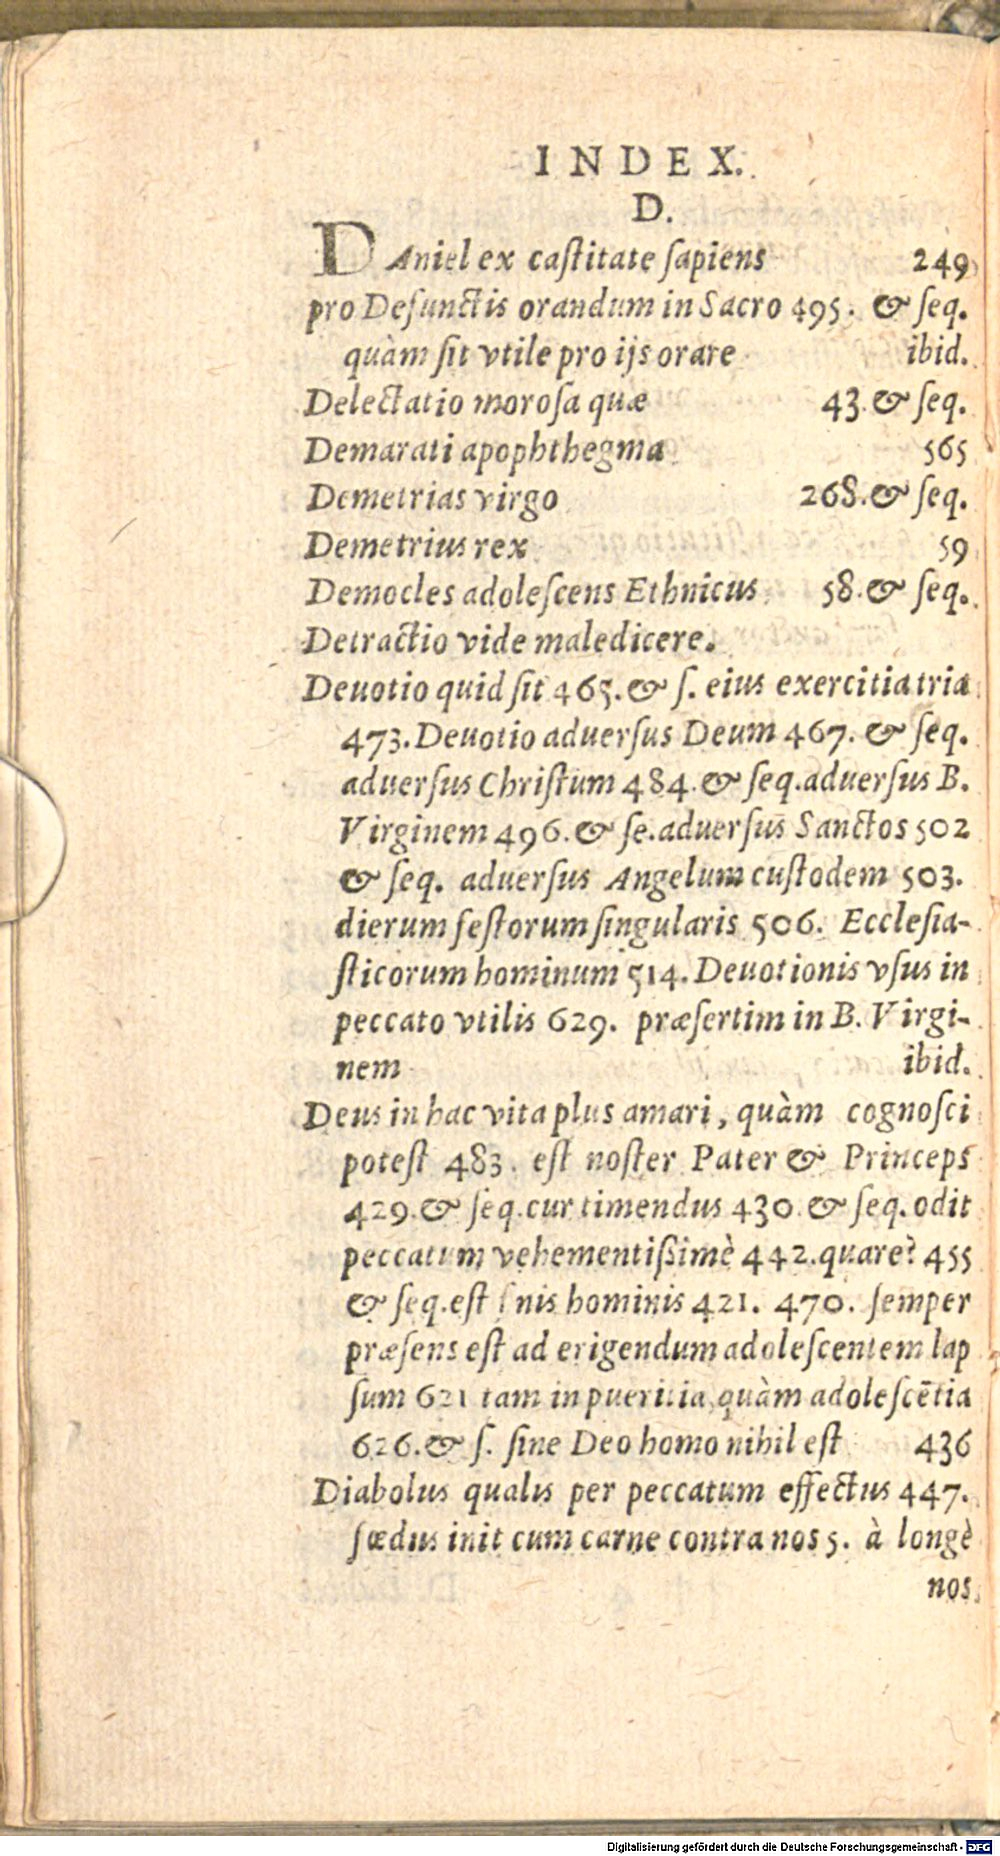 INDEX.
D.
DAniel ex castitate sapiens 249
pro Defunctis orandum in Sacro 495. & seq.
quàm sit vtile pro ijs orare ibid.
Delectatio morosa quæ 43. & seq.
Demarati apophthegma 565
Demetrias virgo 268. & seq.
Demetrius rex 59
Democles adolescens Ethnicus 58. & seq.
Detractio vide maledicere.
Deuotio quid sit 465. & s. eius exercitia tria
473. Deuotio aduersus Deum 467. & seq.
aduersus Christum 484. & seq. aduersus B.
Virginem 496. & se. aduersus Sanctos 502
& seq. aduersus Angelum custodem 503.
dierum festorum singularis 506. Ecclesia-
sticorum hominum 514. Deuotionis vsus in
peccato vtilis 629. præsertim in B. Virgi-
nem ibid.
Deus in hac vita plus amari, quàm cognosci
potest 483. est noster Pater & Princeps
429. & seq. cur timendus 430. & seq. odit
peccatum vehementißimè 442. quare? 455
& seq. est finis hominis 421. 470. semper
præsens est ad erigendum adolescentem lap
sum 621 tam in pueritia, quàm adolescētia
626. & s. sine Deo homo nihil est 436
Diabolus qualis per peccatum effectus 447.
fœdus init cum carne contra nos 5. à longè
nos
Digitalisierung gefördert durch die Deutsche Forschungsgemeinschaft - DFG